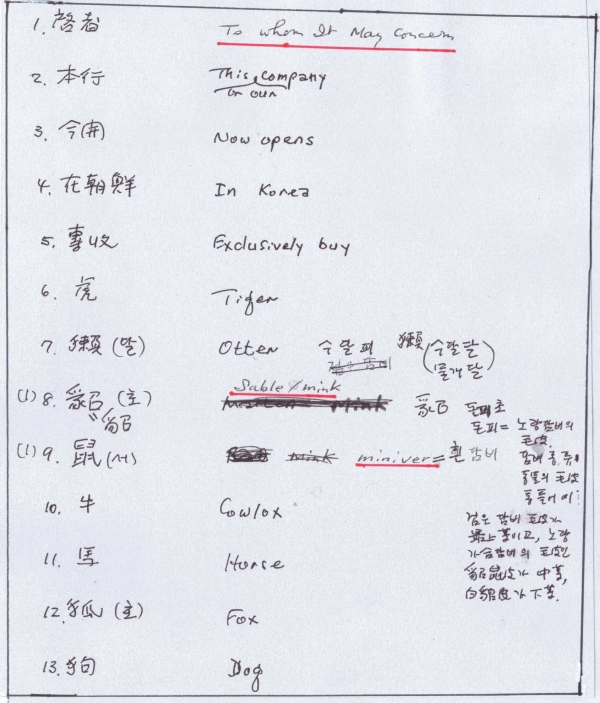 1. 啓者 To Whom It May Concern
2. 本行 This company
or our
3. 今開 Now opens
4. 在朝鮮 In Korea
5. 專收 Exclusively buy
6. 虎 Tiger
7. 獺 (달) Otter 수달피 獺 (수달달
물개달)
Sable/mink
(1) 8. 貂 (초) mink 貂 돈피초
= 貂 돈피= 노랑담비의
모피.
(1) 9. 鼠 (서) mink miniver = 흰담비
담비 종류
동물의 모피
10. 牛 Cow/ox
검은 담비 모피가
最上품이고, 노랑
11. 馬 Horse
가슴담비의 모피인
貂鼠皮가 中품,
12. 狐 (호) Fox
白貂皮가 下품.
13. 狗 Dog